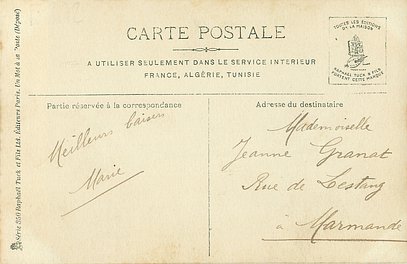 CARTE POSTALE
A UTILISER SEULEMENT DANS LE SERVICE INTERIEUR
FRANCE, ALGÉRIE, TUNISIE
TOUTES LES ÉDITIONS
DE LA MAISON
RAPHAEL TUCK & FILS
PORTENT CETTE MARQUE
Partie réservée à la correspondance
Meilleurs baisers
Marie
Adresse du destinataire
Mademoiselle
Jeanne Granat
Rue de Lestang
à Marmande
Série 856 Raphael Tuck et Fils Ltd. Éditeurs Paris. Un Mot à la Poste (Déposé)